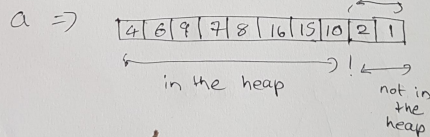 a => 4 6 9 7 8 16 15 10 2 1
in the heap
not in
the
heap